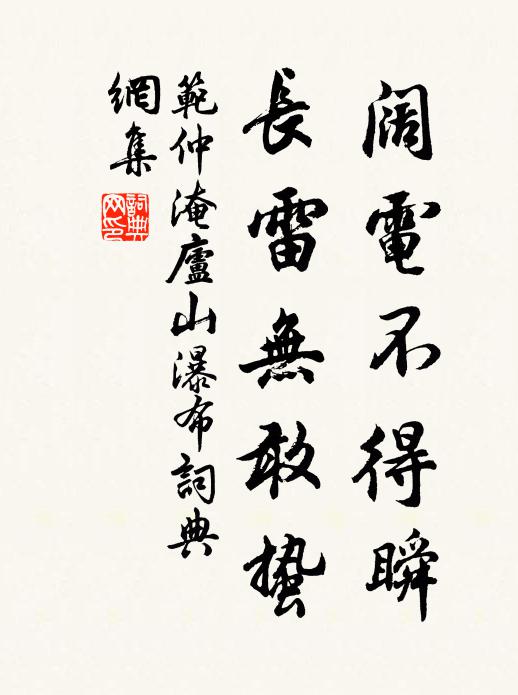 阔電不得瞬
長雷無敢蟄
範仲淹廬山瀑布詞典
網集
詞典网印